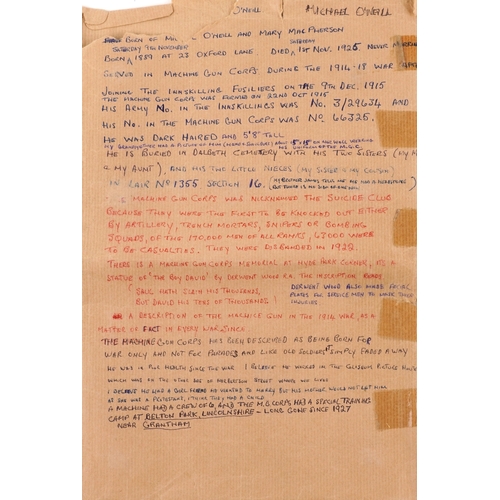 O'NEILL MICHAEL O'NEILL
BORN OF O'NEILL AND MARY MACPHERSON
SATURDAY 9TH NOVEMBER
BORN 1889 AT 23 OXFORD LANE. DIED 1ST NOV. 1925 NEVER MARRIED
SERVED IN MACHINE GUN CORPS DURING THE 1914-18 WAR AFTER
JOINING THE INNSKILLING FUSILIERS ON THE 9TH DEC. 1915
THE MACHINE GUN CORPS WAS FORMED ON 22ND OCT 1915
HIS ARMY NO. IN THE INNSKILLINGS WAS NO. 3/29634 AND
HIS NO. IN THE MACHINE GUN CORPS WAS NO. 66325.
HE WAS DARK HAIRED AND 5'8" TALL
MY GRANDMOTHER HAD A PICTURE OF HIM
HE IS BURIED IN DALBETH CEMETERY WITH HIS TWO SISTERS (MY
& MY AUNT), AND HIS TWO LITTLE NIECES (MY SISTER & MY COUSIN)
IN LAIR NO 1355 SECTION 16.
THE MACHINE GUN CORPS WAS NICKNAMED THE SUICIDE CLUB
BECAUSE THEY WERE THE FIRST TO BE KNOCKED OUT EITHER
BY ARTILLERY, TRENCH MORTARS, SNIPERS OR BOMBING
SQUADS, OF THE 170,000 MEN OF ALL RANKS, 62000 WERE
TO BE CASUALTIES. THEY WERE DISBANDED IN 1922.
THERE IS A MACHINE GUN CORPS MEMORIAL AT HYDE PARK CORNER, ITS A
STATUE OF 'THE BOY DAVID' BY DERWENT WOOD R.A. THE INSCRIPTION READS
"SAUL HATH SLAIN HIS THOUSANDS, DERWENT WOOD ALSO MADE FACIAL
BUT DAVID HIS TENS OF THOUSANDS! PLATES FOR SERVICE MEN TO HIDE THEIR
INJURIES
A DESCRIPTION OF THE MACHINE GUN IN THE 1914 WAR, AS A
MATTER OF FACT IN EVERY WAR SINCE.
THE MACHINE GUN CORPS HAS BEEN DESCRIBED AS BEING BORN FOR
WAR ONLY AND NOT FOR PARADES AND LIKE OLD SOLDIERS IT SIMPLY FADED AWAY
HE WAS IN ILL HEALTH SINCE THE WAR I BELIEVE HE WORKED IN THE COLISEUM PICTURE HOUSE
WHICH WAS ON THE OTHER SIDE OF STREET WHERE HE LIVED
I BELIEVE HE HAD A GIRL FRIEND HE WANTED TO MARRY BUT HIS MOTHER WOULD NOT LET HIM
AS SHE WAS A PROTESTANT, I THINK THEY HAD A CHILD
A MACHINE HAD A CREW OF 6, AND THE M.G. CORPS HAD A SPECIAL TRAINING
CAMP AT BELTON PARK, LINCOLNSHIRE - LONG GONE SINCE 1927
NEAR GRANTHAM